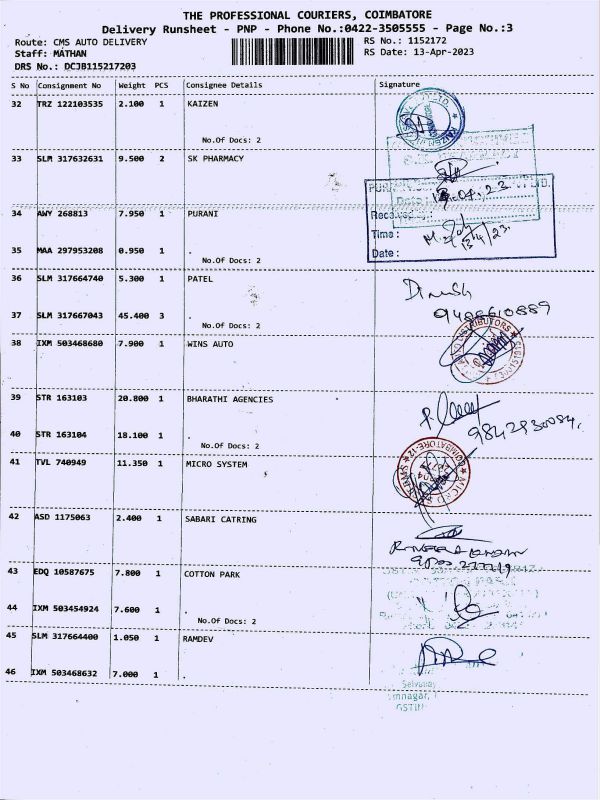 THE PROFESSIONAL COURIERS, COIMBATORE
Delivery Runsheet - PNP - Phone No.:0422-3505555 - Page No.:3
Route: CMS AUTO DELIVERY RS No.: 1152172
Staff: MATHAN RS Date: 13-Apr-2023
DRS No.: DCJB115217203
S No Consignment No Weight PCS Consignee Details Signature
32 TRZ 122103535 2.100 1 KAIZEN
No.Of Docs: 2
33 SLM 317632631 9.500 2 SK PHARMACY
34 AWY 268813 7.950 1 PURANI
Time :
35 MAA 297953208 0.950 1 .
13/4/23
Date :
No.Of Docs: 2
36 SLM 317664740 5.300 1 PATEL
Dinesh
37 SLM 317667043 45.400 3 .
No.Of Docs: 2
38 IXM 503468680 7.900 1 WINS AUTO
39 STR 163103 20.800 1 BHARATHI AGENCIES
40 STR 163104 18.100 1 .
No.Of Docs: 2
41 TVL 740949 11.350 1 MICRO SYSTEM
42 ASD 1175063 2.400 1 SABARI CATRING
43 EDQ 10587675 7.800 1 COTTON PARK
44 IXM 503454924 7.600 1 .
No.Of Docs: 2
45 SLM 317664400 1.050 1 RAMDEV
46 IXM 503468632 7.000 1 .